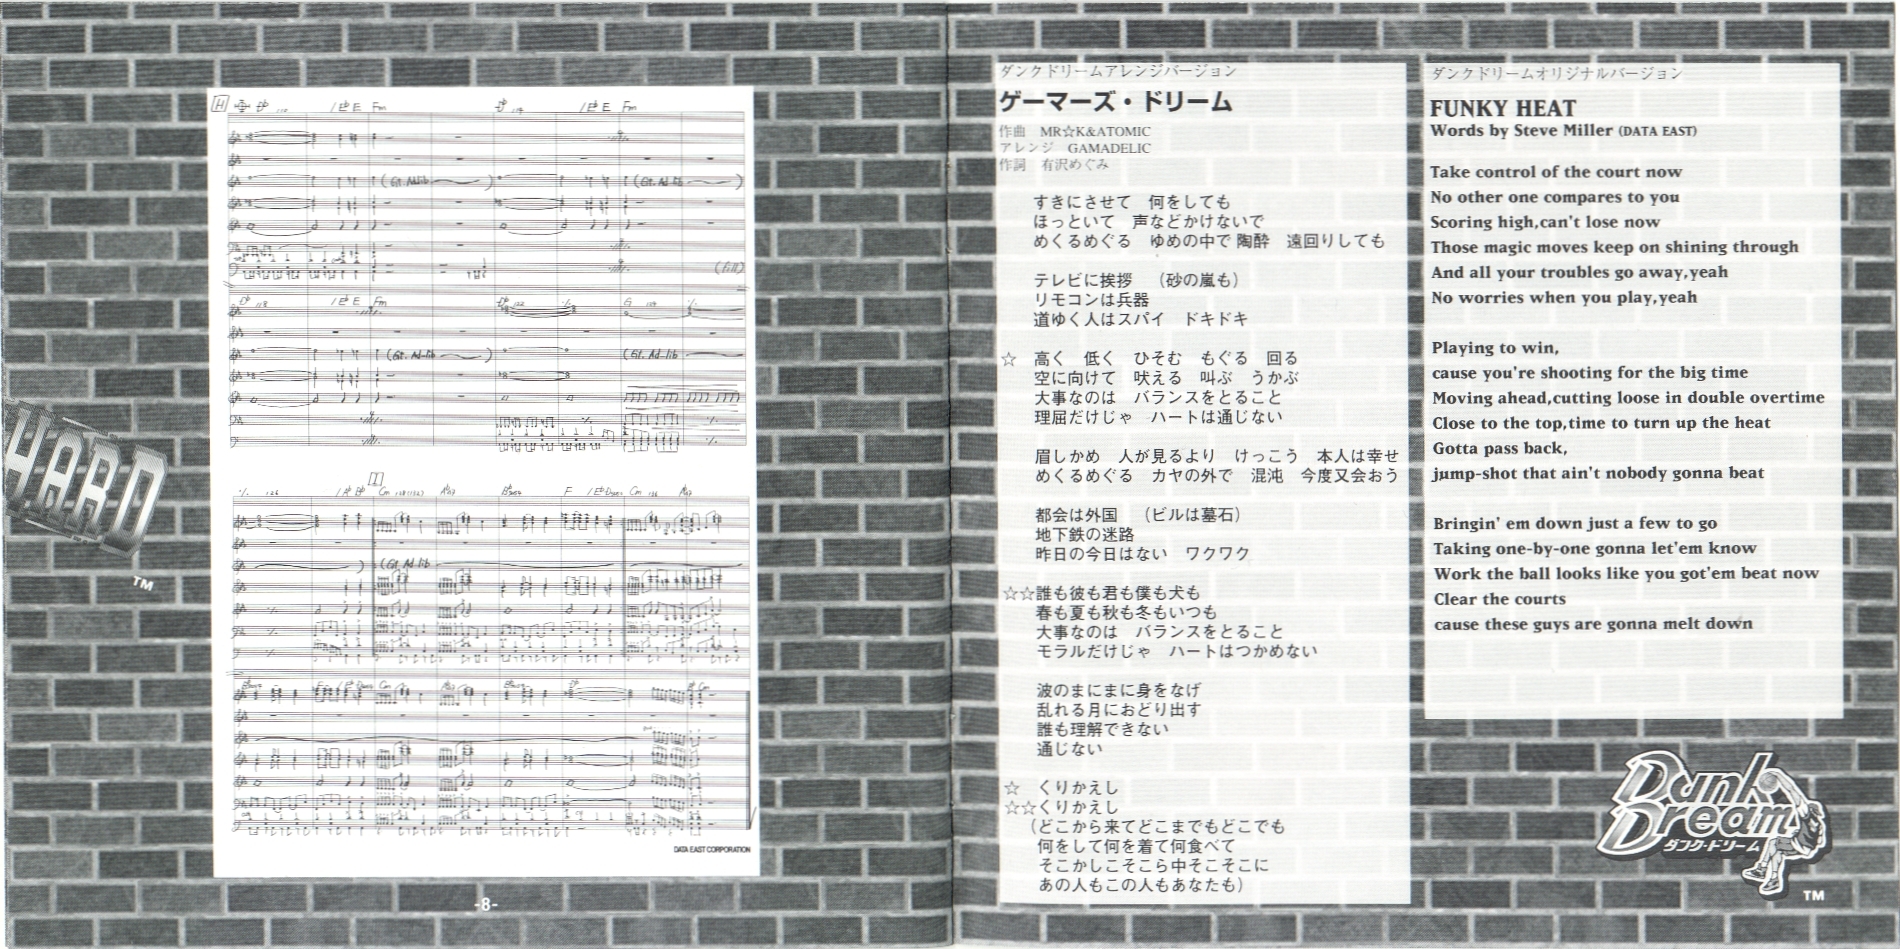 HARD
TM
H
(Gt. Ad-lib
(Gt. Ad-lib
(fill)
(Gt. Ad-lib
(Gt. Ad-lib
I
(Gt. Ad-lib
DATA EAST CORPORATION
-8-
ダンクドリームアレンジバージョン
ゲーマーズ・ドリーム
作曲　MR☆K&ATOMIC
アレンジ　GAMADELIC
作詞　有沢めぐみ
すきにさせて　何をしても
ほっといて　声などかけないで
めくるめぐる　ゆめの中で 陶酔　遠回りしても
テレビに挨拶　（砂の嵐も）
リモコンは兵器
道ゆく人はスパイ　ドキドキ
☆　高く　低く　ひそむ　もぐる　回る
空に向けて　吠える　叫ぶ　うかぶ
大事なのは　バランスをとること
理屈だけじゃ　ハートは通じない
眉しかめ　人が見るより　けっこう　本人は幸せ
めくるめぐる　カヤの外で　混沌　今度又会おう
都会は外国　（ビルは墓石）
地下鉄の迷路
昨日の今日はない　ワクワク
☆☆誰も彼も君も僕も犬も
春も夏も秋も冬もいつも
大事なのは　バランスをとること
モラルだけじゃ　ハートはつかめない
波のまにまに身をなげ
乱れる月におどり出す
誰も理解できない
通じない
☆　くりかえし
☆☆くりかえし
（どこから来てどこまでもどこでも
何をして何を着て何食べて
そこかしこそこら中そこそこに
あの人もこの人もあなたも）
ダンクドリームオリジナルバージョン
FUNKY HEAT
Words by Steve Miller (DATA EAST)
Take control of the court now
No other one compares to you
Scoring high,can't lose now
Those magic moves keep on shining through
And all your troubles go away,yeah
No worries when you play,yeah
Playing to win,
cause you're shooting for the big time
Moving ahead,cutting loose in double overtime
Close to the top,time to turn up the heat
Gotta pass back,
jump-shot that ain't nobody gonna beat
Bringin' em down just a few to go
Taking one-by-one gonna let'em know
Work the ball looks like you got'em beat now
Clear the courts
cause these guys are gonna melt down
Dunk
Dream
ダンク・ドリーム
TM